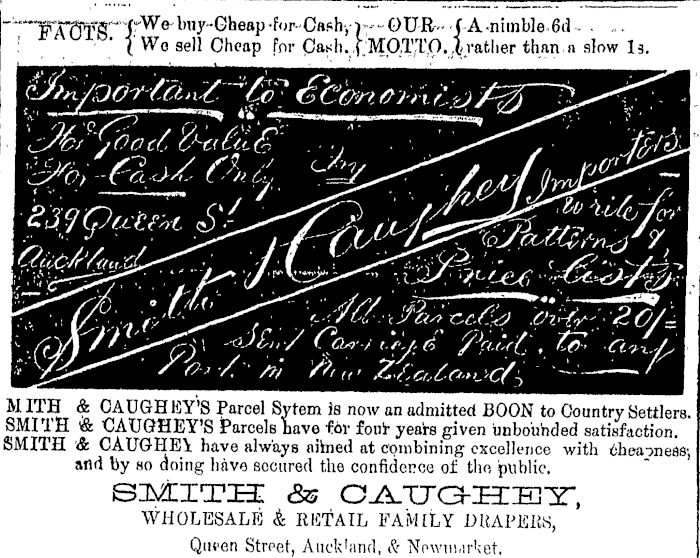 FACTS. { We buy Cheap for Cash, } OUR { A nimble 6d
We sell Cheap for Cash. } MOTTO. { rather than a slow 1s.
Important to Economists
For Good Value
For Cash Only Try
239 Queen St
Auckland
Smith & Caughey Importers
Write for
Patterns &
Price Lists
All Parcels over 20/=
Sent Carriage Paid to any
Port in New Zealand,
MITH & CAUGHEY'S Parcel Sytem is now an admitted BOON to Country Settlers.
SMITH & CAUGHEY'S Parcels have for four years given unbounded satisfaction.
SMITH & CAUGHEY have always aimed at combining excellence with cheapness,
and by so doing have secured the confidence of the public.
SMITH & CAUGHEY,
WHOLESALE & RETAIL FAMILY DRAPERS,
Queen Street, Auckland, & Newmarket.